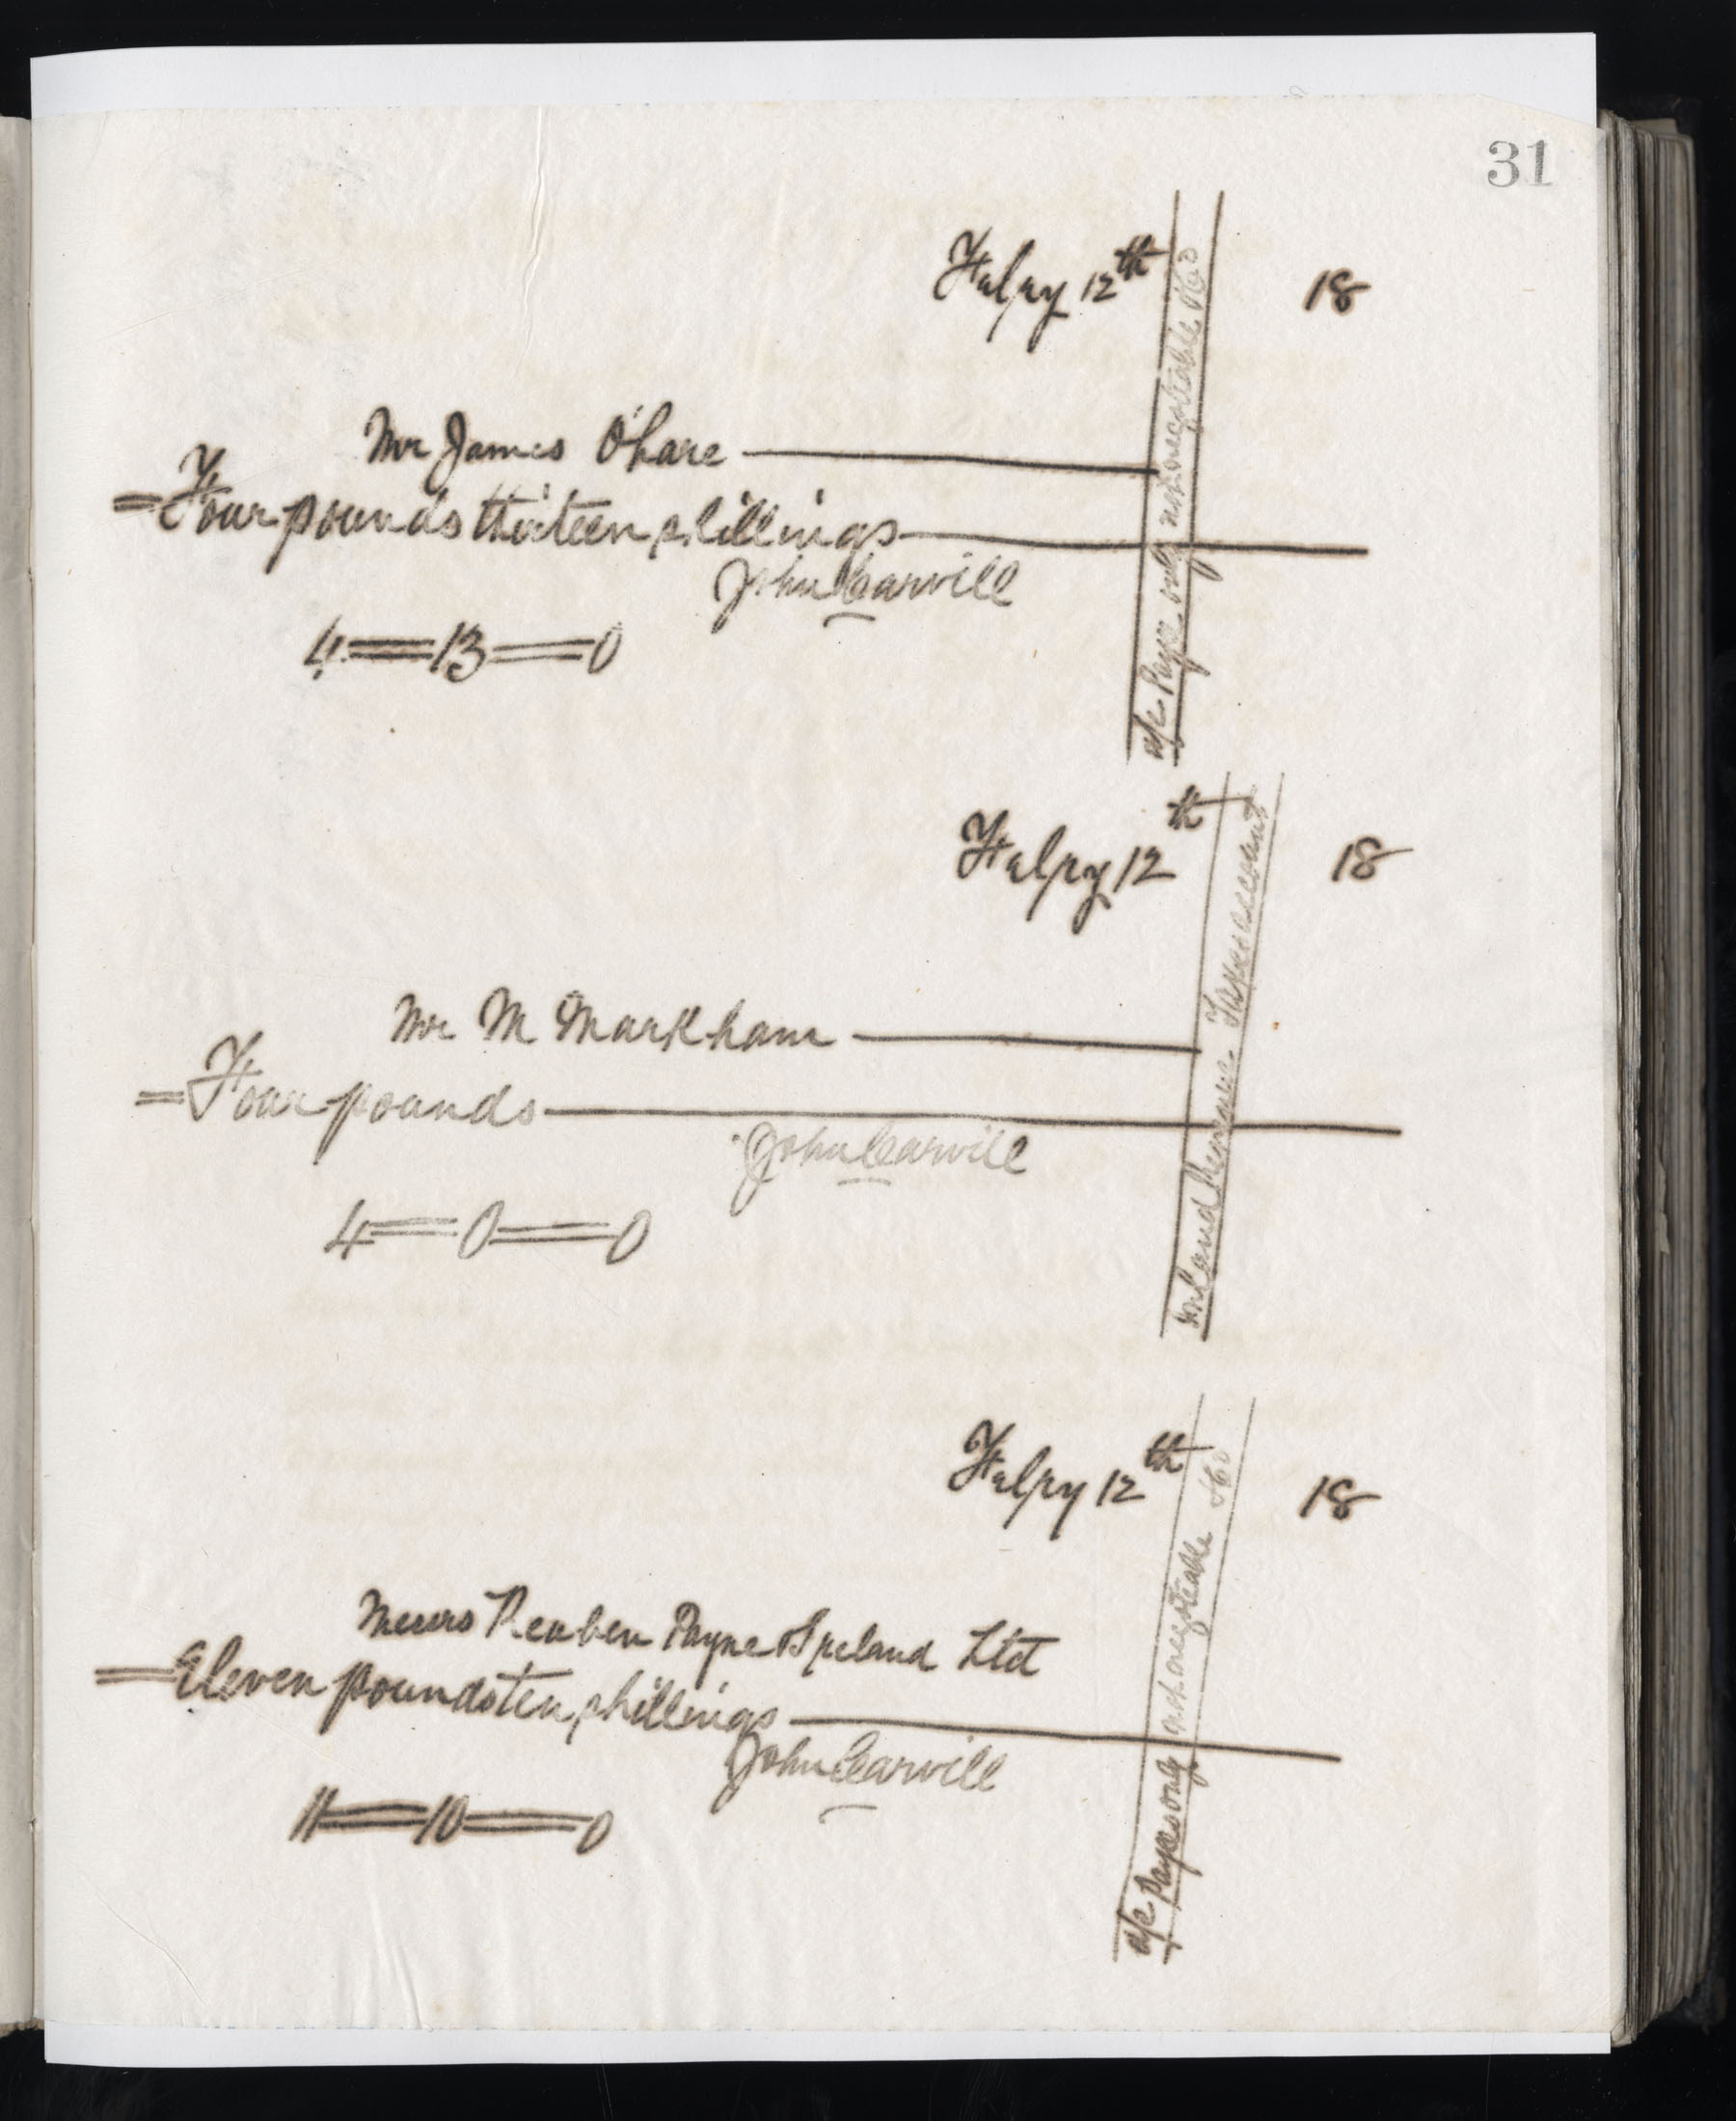 31
Febry 12th 18
a/c Payee only not negotiable &Co
Mr James O'hare
= Four pounds thirteen shillings
John Carvill
4=13=0
Febry 12th 18
Inland Revenue Taxes account
Mr M Markham
= Four pounds
John Carvill
4=0=0
Febry 12th 18
a/c Payees only not negotiable &Co
Messrs Reuben Payne & Ireland Ltd
= Eleven pounds ten shillings
John Carvill
11=10=0